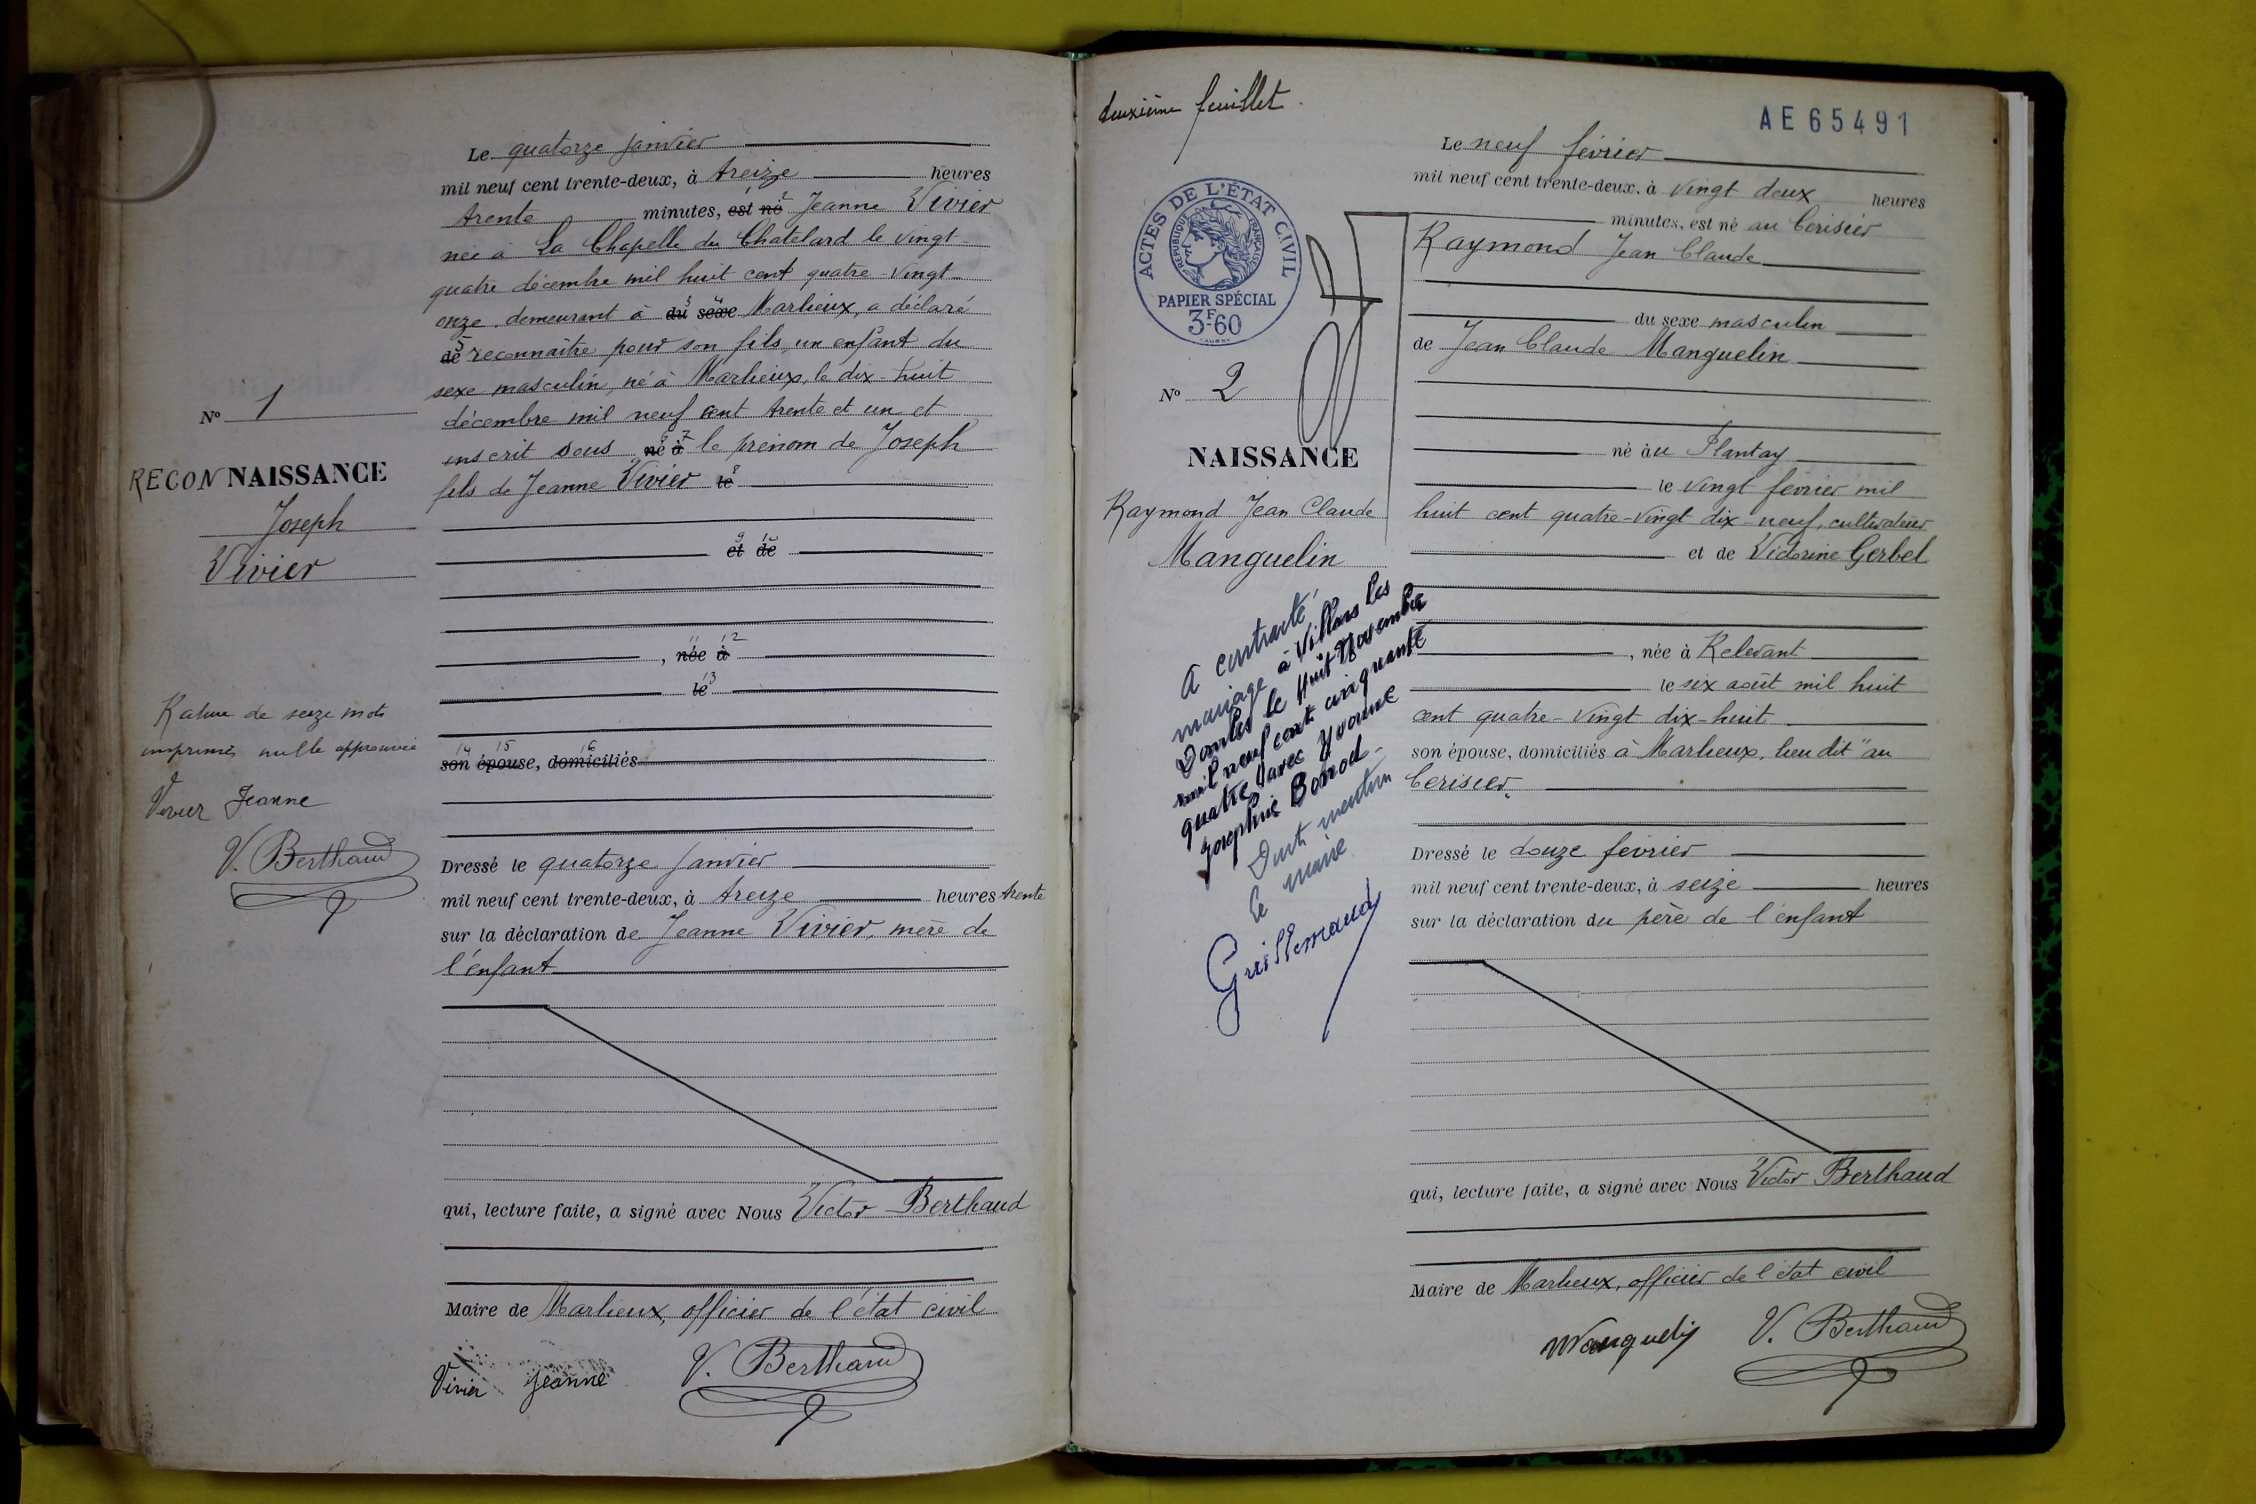 N° 1
RECONNAISSANCE
Joseph
Vivier
Rature de seize mots
imprimés nulle approuvée
Vivier Jeanne
V. Berthaud
Le quatorze janvier
mil neuf cent trente-deux, à treize heures
trente minutes, est né Jeanne Vivier
née à La Chapelle du Chatelard le vingt-
quatre décembre mil huit cent quatre-vingt-
onze, demeurant à du sexe Marlieux, a déclaré
de reconnaître pour son fils, un enfant du
sexe masculin, né à Marlieux, le dix-huit
décembre mil neuf cent trente et un et
inscrit sous né à le prénom de Joseph
fils de Jeanne Vivier le
et de
, née à
le
son épouse, domiciliés
Dressé le quatorze janvier
mil neuf cent trente-deux, à treize heures trente
sur la déclaration de Jeanne Vivier, mère de
l'enfant
qui, lecture faite, a signé avec Nous Victor Berthaud
Maire de Marlieux, officier de l'état civil
Vivier Jeanne V. Berthaud
deuxième feuillet
AE65491
ACTES DE L'ÉTAT CIVIL
RÉPUBLIQUE FRANÇAISE
PAPIER SPÉCIAL
3F60
N° 2
NAISSANCE
Raymond Jean Claude
Manguelin
A contracté
mariage à Villars les
Dombes le huit Novembre
mil neuf cent cinquante
quatre avec Yvonne
Joséphine
Dont mention
le maire
Guillemaud
Le neuf février
mil neuf cent trente-deux, à vingt deux heures
minutes, est né au Cerisier
Raymond Jean Claude
du sexe masculin
de Jean Claude Manguelin
né au Plantay
le vingt février mil
huit cent quatre-vingt dix-neuf, cultivateur
et de Victorine Gerbel
, née à Relevant
le six août mil huit
cent quatre-vingt dix-huit
son épouse, domiciliés à Marlieux, lieu dit "au
Cerisier"
Dressé le douze février
mil neuf cent trente-deux, à seize heures
sur la déclaration du père de l'enfant
qui, lecture faite, a signé avec Nous Victor Berthaud
Maire de Marlieux, officier de l'état civil
Manguelin V. Berthaud